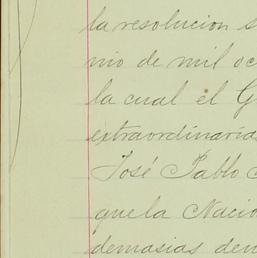 la resolucion s
nio de mil oc
la cual el G
extraordinaria
José Pablo
que la Nacio
demasias den